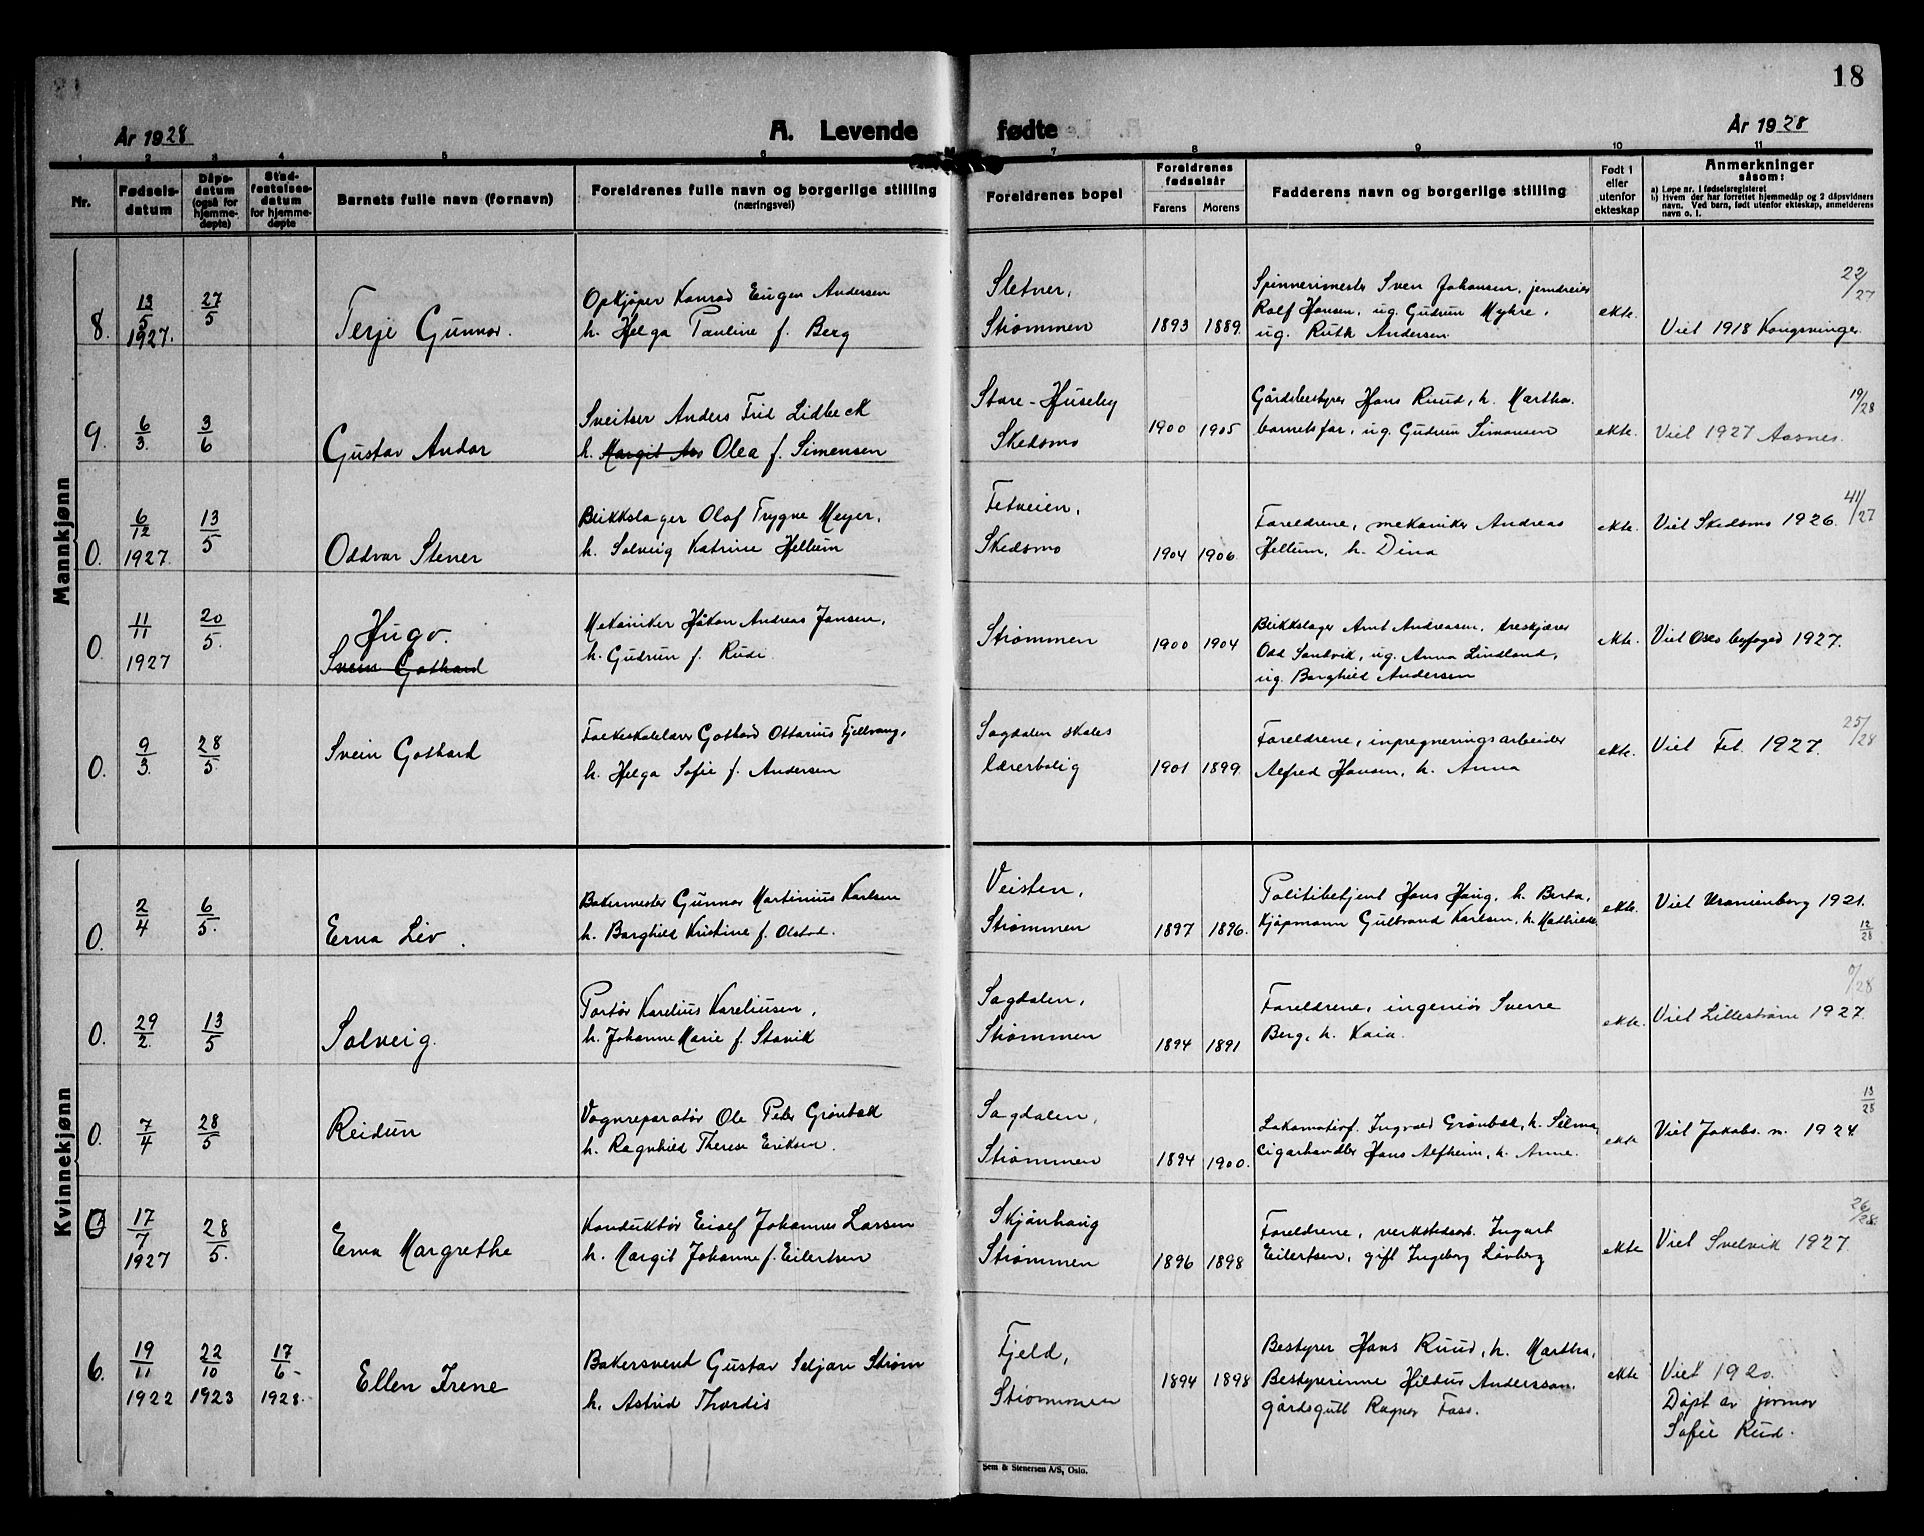 18
År 1928
A. Levende fødte
År 1928
1 2 3 4 5 6 7 8 9 10 11
Nr.
Fødsels-
datum
Dåps-
datum
(også for
hjemme-
døpte)
Stad-
festelses-
datum
for hjemme-
døpte
Barnets fulle navn (fornavn)
Foreldrenes fulle navn og borgerlige stilling
(næringsvei)
Foreldrenes bopel
Foreldrenes
fødselsår
Farens Morens
Fadderens navn og borgerlige stilling
Født i
eller
utenfor
ekteskap
Anmerkninger
såsom:
a) Løpe nr. i fødselsregisteret
b) Hvem der har forrettet hjemmedåp og 2 dåpsvidners
navn. Ved barn, født utenfor ekteskap, anmelderens
navn o. l.
Mannkjønn
8.
13/5
1927.
27/5
Terje Gunnar.
Opkjøper Konrad Eugen Andersen
h. Helga Pauline f. Berg
Sletner,
Strømmen
1893 1889.
Spinnerimester Sven Johansen, jerndreier
Rolf Hansen, ug. Gudrun Myhre,
ug. Ruth Andersen.
ekte.
22/27
Viet 1918 Kongsvinger.
9.
6/3.
3/6
Gustav Andor
Sveitser Anders Frid Lidbeck
h. Margit Olea f. Simensen
Store-Huseby
Skedsmo
1900 1905
Gårdsbestyrer Hans Ruud, h. Martha.
barnets far, ug. Gudrun Simonsen
ekte.
19/28
Viet 1927 Aasnes.
0.
6/12
1927.
13/5
Oddvar Stener
Blikkslager Olaf Trygve Meyer,
h. Solveig Katrine Hellum
Fetveien,
Skedsmo
1904 1906.
Foreldrene, mekaniker Andreas
Hellum, h. Dina
ekte.
41/27
Viet Skedsmo 1926.
0.
11/11
1927
20/5.
Hugo.
Svein Gothard
Mekaniker Håkon Andreas Jansen,
h. Gudrun f. Rudi
Strømmen
1900 1904
Blikkslager Arnt Andreasen, treskjærer
Odd Sandvik, ug. Anna Lindland,
ug. Borghild Andersen
ekte.
Viet Oslo byfoged 1927.
0.
9/3.
28/5.
Svein Gothard
Folkeskolelærer Gothard Ottarius Fjellvang,
h. Helga Sofie f. Andersen
Sagdalen skoles
lærerbolig
1901 1899.
Foreldrene, inpregneringsarbeider
Alfred Hansen, h. Anna
ekte.
25/28
Viet Fet 1927.
Kvinnekjønn
0.
2/4
6/5.
Erna Liv.
Bakermester Gunnar Martinius Karlsen
h. Borghild Kristine f. Olstad.
Veisten,
Strømmen
1897 1896.
Politibetjent Hans Haug, h. Berta,
Kjøpmann Gulbrand Karlsen, h. Mathilde
ekte.
Viet Uranienborg 1921.
12/28
0.
29/2.
13/5
Solveig.
Portør Karelius Kareliusen,
h. Johanne Marie f. Stavik
Sagdalen,
Strømmen
1894 1891
Foreldrene, ingeniør Sverre
Berg, h. Kaia.
ekte.
/28
Viet Lillestrøm 1927.
0.
7/4
28/5
Reidun
Vognreparatør Ole Peter Grønbak
h. Ragnhild Therese Eriksen.
Sagdalen,
Strømmen
1894 1900.
Lokomotivf. Ingvald Grønbak, h. Selma,
Cigarhandler Hans Alfheim, h. Anne.
ekte
13/28
Viet Jakobs m. 1924.
0
17/7
1927
28/5.
Erna Margrethe
Konduktør Eiolf Johannes Larsen
h. Margit Johanne f. Eilertsen
Skjønhaug
Strømmen
1896 1898
Foreldrene, verkstedsarb. Ingart
Eilertsen, gift Ingeborg Løvberg
ekte
26/28.
Viet Svelvik 1927.
6.
19/11
1922
22/10
1923
17/6-
1928.
Ellen Irene
Bakersvend Gustav Seljan Strøm
h. Astrid Thordis
Fjeld,
Strømmen
1894 1898
Bestyrer Hans Ruud, h. Martha,
Bestyrerinne Hildur Andersson,
gårdsgutt Ragnar Foss.
ekte
Viet 1920.
Døpt av jormor
Sofie Rud.
Sem & Stenersen A/S, Oslo.